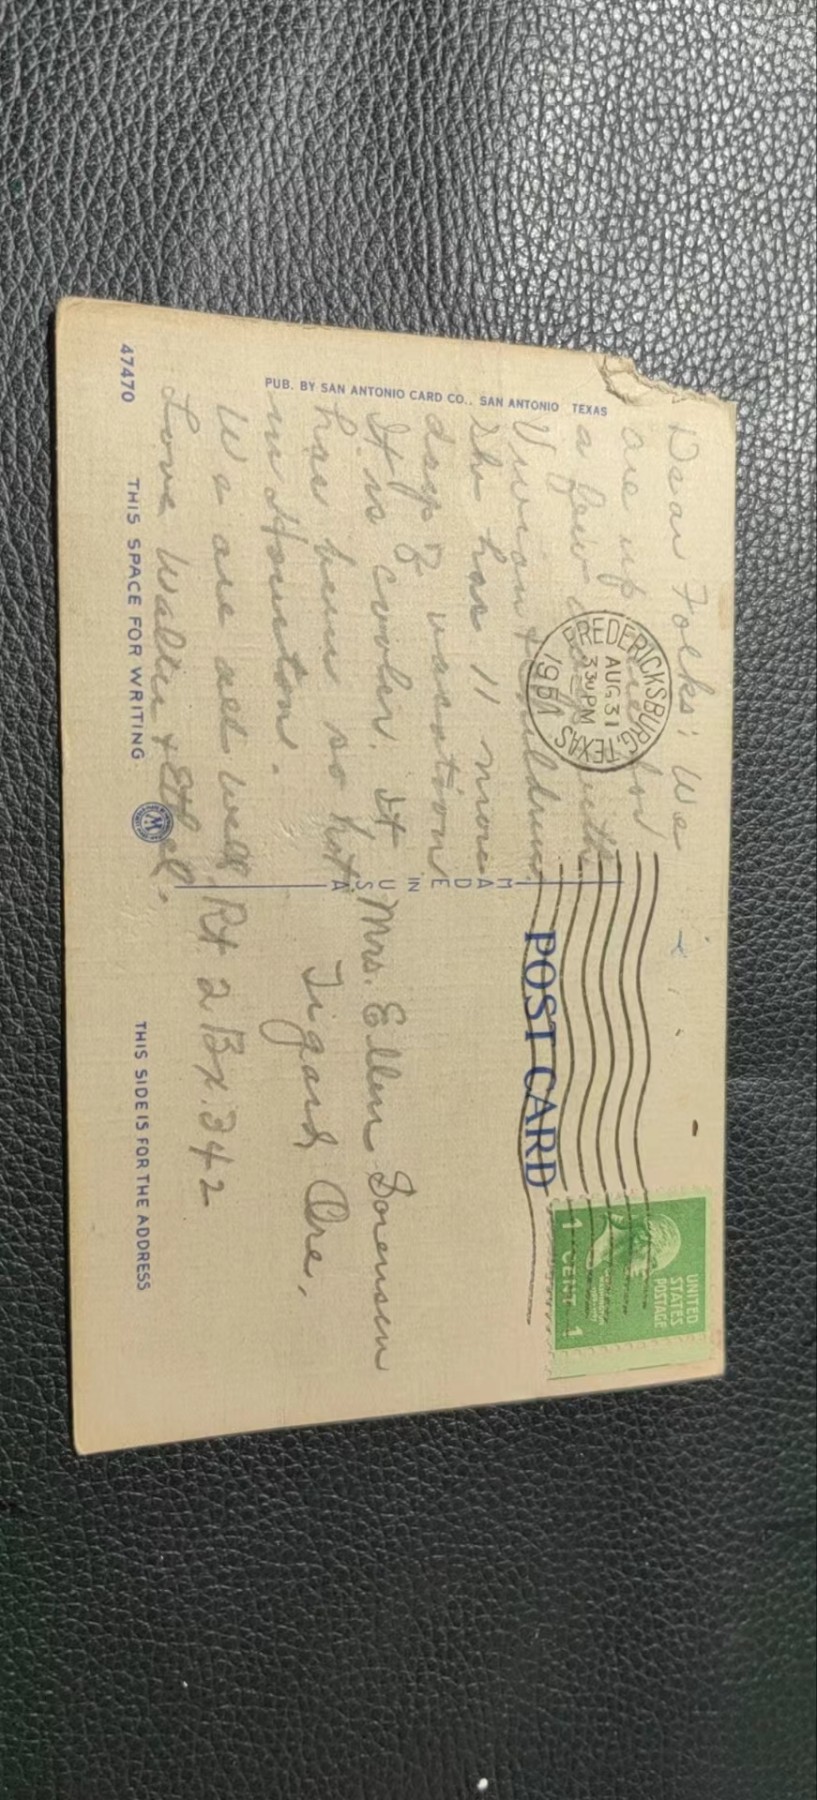 Dear Folks: We
are up here for
a few days with
Vivian & children.
She has 11 more
days of vacation
It is cooler. It
has been so hot
in Houston.
We are all well.
Love Walter & Ethel.
PUB. BY SAN ANTONIO CARD CO., SAN ANTONIO TEXAS
47470
THIS SPACE FOR WRITING
MADE IN U.S.A.
FREDERICKSBURG, TEXAS
AUG 31
330 PM
1951
POST CARD
UNITED
STATES
POSTAGE
1 CENT 1
Mrs. Ellen Sorensen
Tigard, Ore.
Rt 2 Bx. 342
THIS SIDE IS FOR THE ADDRESS